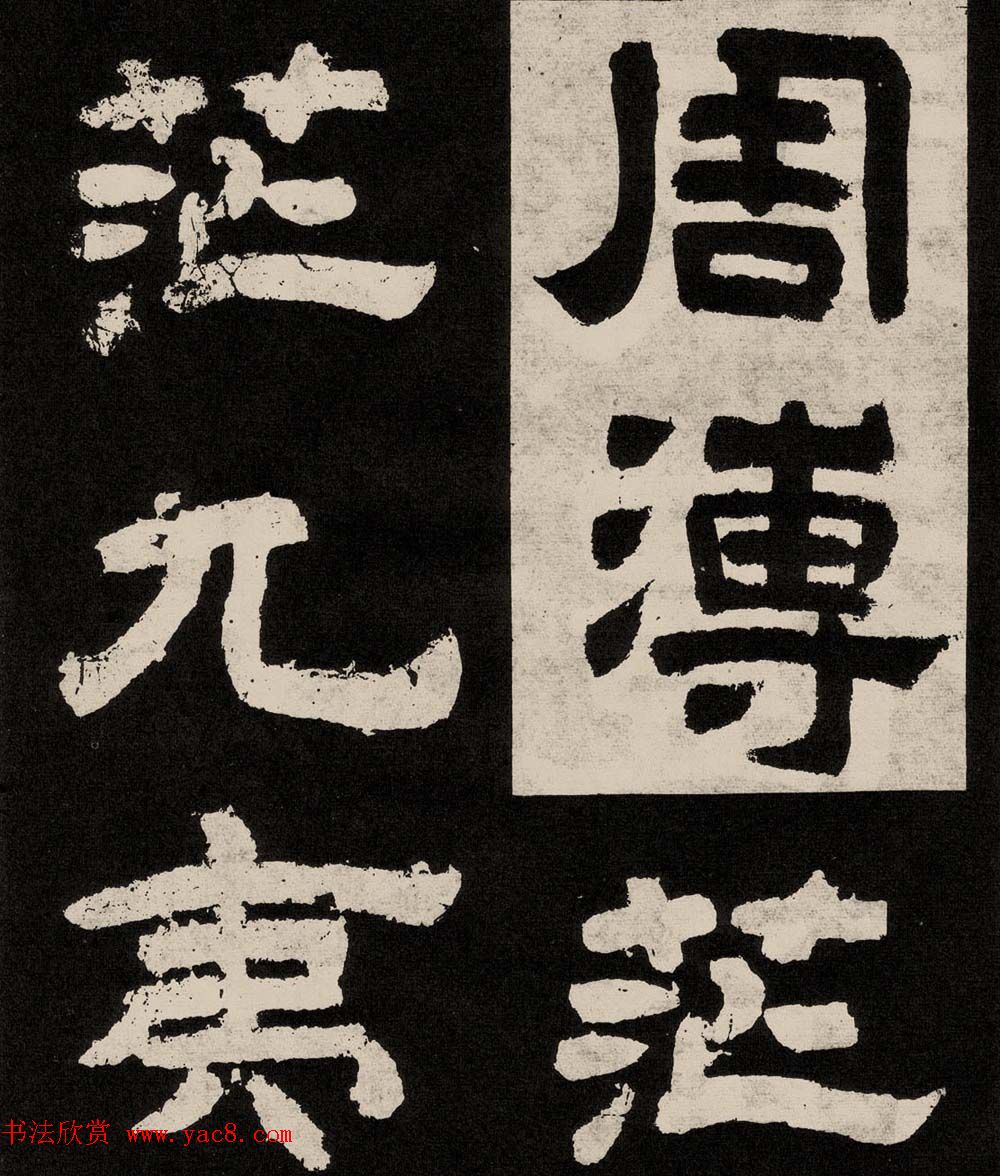 周溥茫
茫九夷
书法欣赏 www.yac8.com